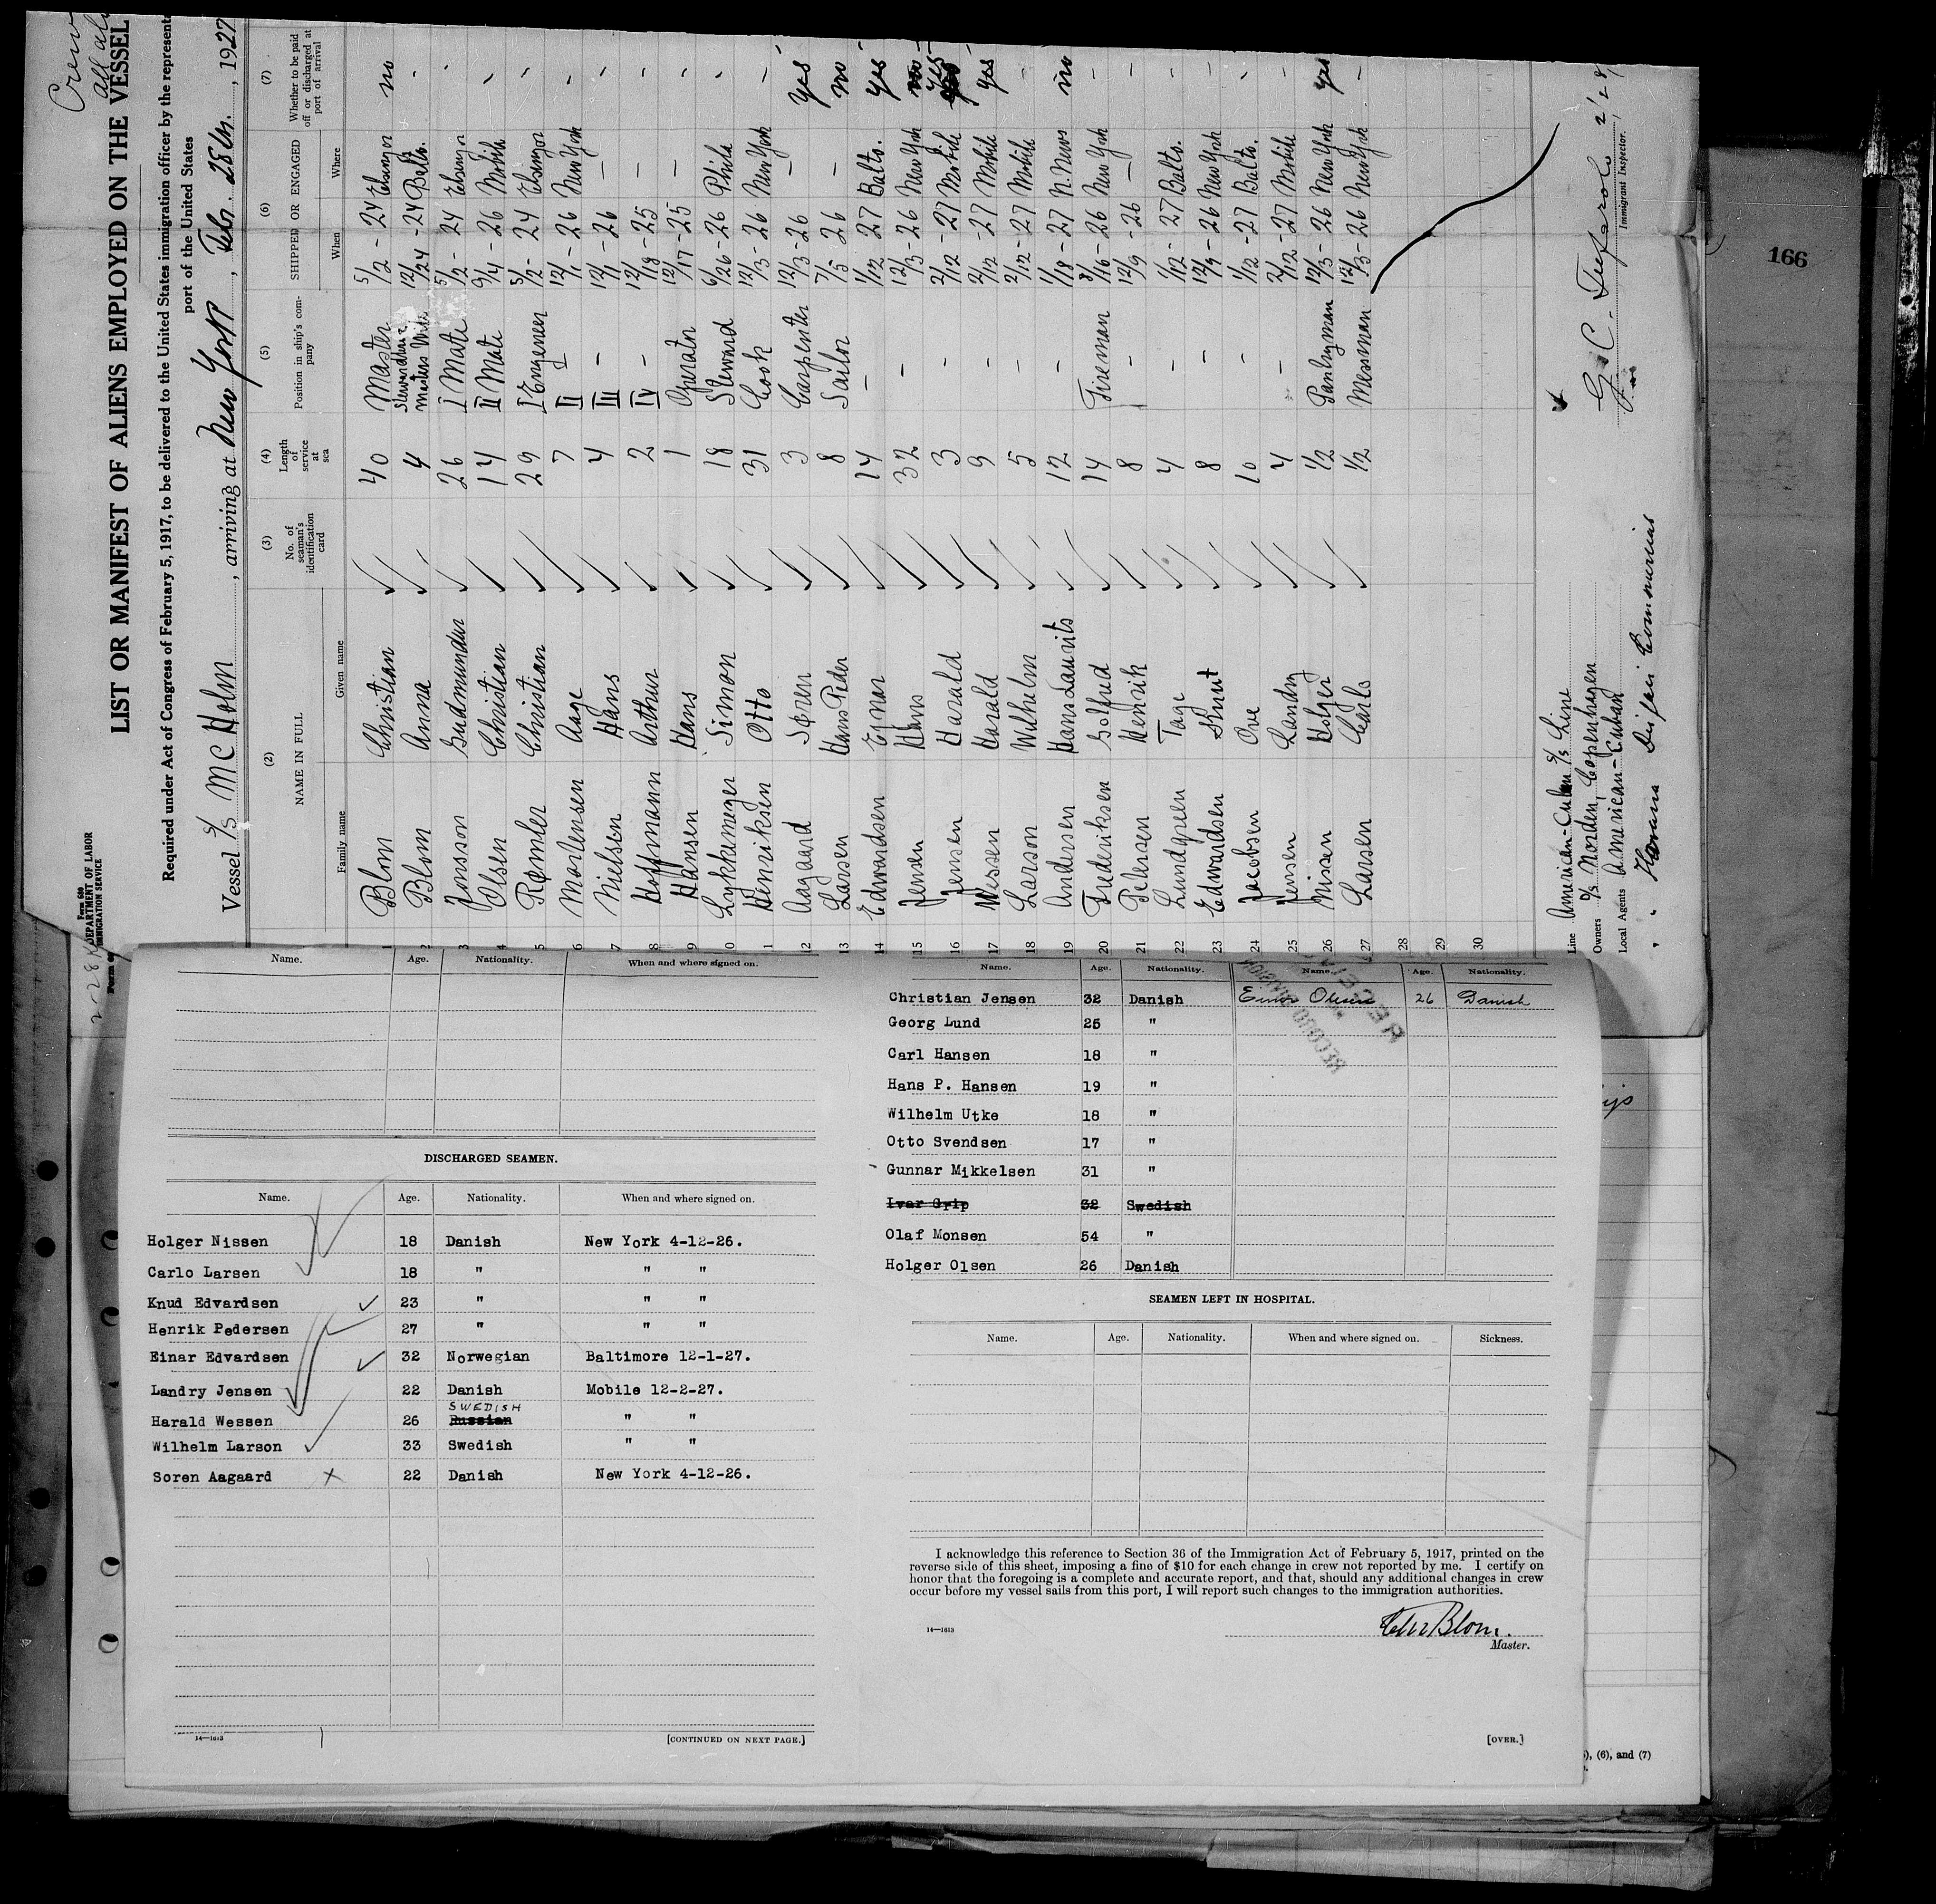 Crew
LIST OR MANIFEST OF ALIENS EMPLOYED ON THE VESSEL
Required under Act of Congress of February 5, 1917, to be delivered to the United States immigration officer by the represent
port of the United States
Form 680
DEPARTMENT OF LABOR
IMMIGRATION SERVICE
Vessel S/S McHolm, arriving at New York, Febr. 28th., 1927
(2) (3) (4) (5) (6) (7)
NAME IN FULL No. of seaman's identification card Length of service at sea Position in ship's company SHIPPED OR ENGAGED Whether to be paid off or discharged at port of arrival
Family name Given name When Where
1 Blom Christian 40 Master 5/2-24 Elsinor no
2 Blom Anna 4 Stewardess masters wife 12/24-24 Balto. -
3 Jonsson Gudmundur 26 I Mate 5/2-24 Elsinor -
4 Olsen Christian 14 II Mate 9/4-26 Mobile -
5 Rømler Christian 29 I Engeneer 5/2-24 Elsinor -
6 Mortensen Aage 7 II - 12/1-26 New York -
7 Nielsen Hans 4 III - 12/1-26 - -
8 Hoffmann Arthur 2 IV - 12/18-25 - -
9 Hansen Hans 1 Operator 12/17-25 - -
10 Lykkemeyer Simon 18 Steward 6/26-26 Phila -
11 Henriksen Otto 31 Cook 12/3-26 New York -
12 Aagaard Søren 3 Carpenter 12/3-26 - yes
13 Larsen Hans Peder 8 Sailor 7/5-26 - no
14 Edwardsen Ejnar 14 - 1/12-27 Balto. yes
15 Jensen Hans 32 - 12/3-26 New York no
16 Jensen Harald 3 - 2/12-27 Mobile yes
17 Wessen Harald 9 - 2/12-27 Mobile yes
18 Larson Wilhelm 5 - 2/12-27 Mobile -
19 Andersen Hans Laurits 12 - 1/18-27 N. News no
20 Frederiksen Solfred 14 Fireman 8/16-26 New York -
21 Petersen Henrik 8 - 12/9-26 - -
22 Lundgreen Tage 4 - 1/12-27 Balto. -
23 Edwardsen Knut 8 - 12/9-26 New York -
24 Jacobsen Ove 10 - 1/12-27 Balto. -
25 Jensen Landry 4 - 2/12-27 Mobile -
26 Nissen Holger 1/2 Pantryman 12/3-26 New York yes
27 Larsen Carlo 1/2 Mesman 12/3-26 New York -
28
29
30
Line American-Cuban S/S Line
Owners D/S Norden, Copenhagen
Local Agents American-Cuban
Immigrant Inspector.
166
Name. Age. Nationality. When and where signed on.
DISCHARGED SEAMEN.
Name. Age. Nationality. When and where signed on.
Holger Nissen 18 Danish New York 4-12-26.
Carlo Larsen 18 " " "
Knud Edvardsen 23 " " "
Henrik Pedersen 27 " " "
Einar Edvardsen 32 Norwegian Baltimore 12-1-27.
Landry Jensen 22 Danish Mobile 12-2-27.
SWEDISH
Harald Wessen 26 Russian " "
Wilhelm Larson 33 Swedish " "
Soren Aagaard 22 Danish New York 4-12-26.
14—1613
[CONTINUED ON NEXT PAGE.]
Name. Age. Nationality. Name. Age. Nationality.
Christian Jensen 32 Danish Einar Olesen 26 Danish
Georg Lund 25 "
Carl Hansen 18 "
Hans P. Hansen 19 "
Wilhelm Utke 18 "
Otto Svendsen 17 "
Gunnar Mikkelsen 31 "
Ivar Grip 32 Swedish
Olaf Monsen 54 "
Holger Olsen 26 Danish
SEAMEN LEFT IN HOSPITAL.
Name. Age. Nationality. When and where signed on. Sickness.
I acknowledge this reference to Section 36 of the Immigration Act of February 5, 1917, printed on the
reverse side of this sheet, imposing a fine of $10 for each change in crew not reported by me. I certify on
honor that the foregoing is a complete and accurate report, and that, should any additional changes in crew
occur before my vessel sails from this port, I will report such changes to the immigration authorities.
14—1613
Chr Blom.
Master.
[OVER.]
), (6), and (7)